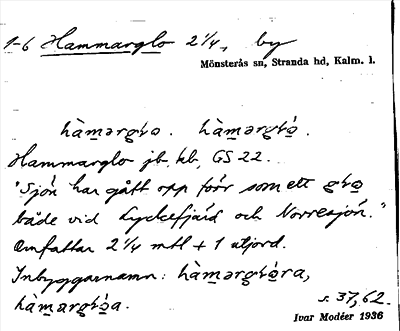 1-6 Hammarglo 2 1/4, by
Mönsterås sn, Stranda hd, Kalm. l.
hàmərgɩo. hàmərgɩó.
Hammarglo jb, kb, GS 22.
"Sjön har gått opp förr som ett gɩo
både vid Lyckefjärd och Norresjön."
Omfattar 2 1/4 mtl + 1 utjord.
Inbyggarnamn: hàmərgɩòra,
hàmargɩòa.
s. 37, 62.
Ivar Modéer 1936